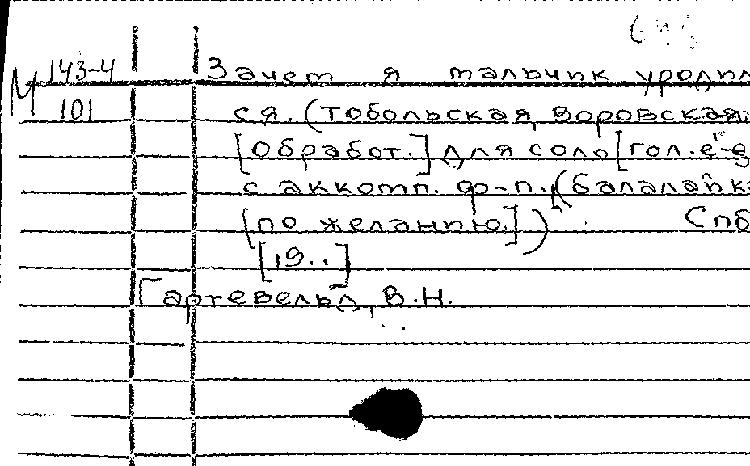 М 143-4
101
Зачем я мальчик уродил
ся. (Тобольская, воровская.
[Обработ.] для соло [гол. e'-g
с аккомп. ф-п. (балалайка
[по желанию.]) Спб
[19..]
Гартевельд, В.Н.